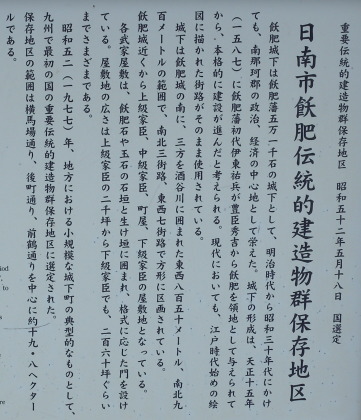 重要伝統的建造物群保存地区　昭和五十二年五月十八日　国選定
日南市飫肥伝統的建造物群保存地区
飫肥城下は飫肥藩五万一千石の城下として、明治時代から昭和三十年代にかけ
ても、南那珂郡の政治、経済の中心地として栄えた。城下の形成は、天正十五年
（一五八七）に飫肥藩初代伊東祐兵が豊臣秀吉から飫肥を領地として与えられて
から、本格的に建設が進んだと考えられる。現代においても、江戸時代始めの絵
図に描かれた街路がそのまま使用されている。
城下は飫肥城の南に、三方を酒谷川に囲まれた東西八百五十メートル、南北九
百メートルの範囲で、南北三街路、東西七街路で方形に区画されている。
飫肥城近くから上級家臣、中級家臣、町屋、下級家臣の屋敷地となっている。
各武家屋敷は、飫肥石や玉石の石垣と生け垣に囲まれ、格式に応じた門を設け
ている。屋敷地の広さは上級家臣の二千坪から下級家臣でも、二百六十坪ぐらい
までさまざまである。
昭和五二（一九七七）年、地方における小規模な城下町の典型的なものとして、
九州で最初の国の重要伝統的建造物群保存地区に選定された。
保存地区の範囲は横馬場通り、後町通り、前鶴通りを中心に約十九・八ヘクター
ルである。